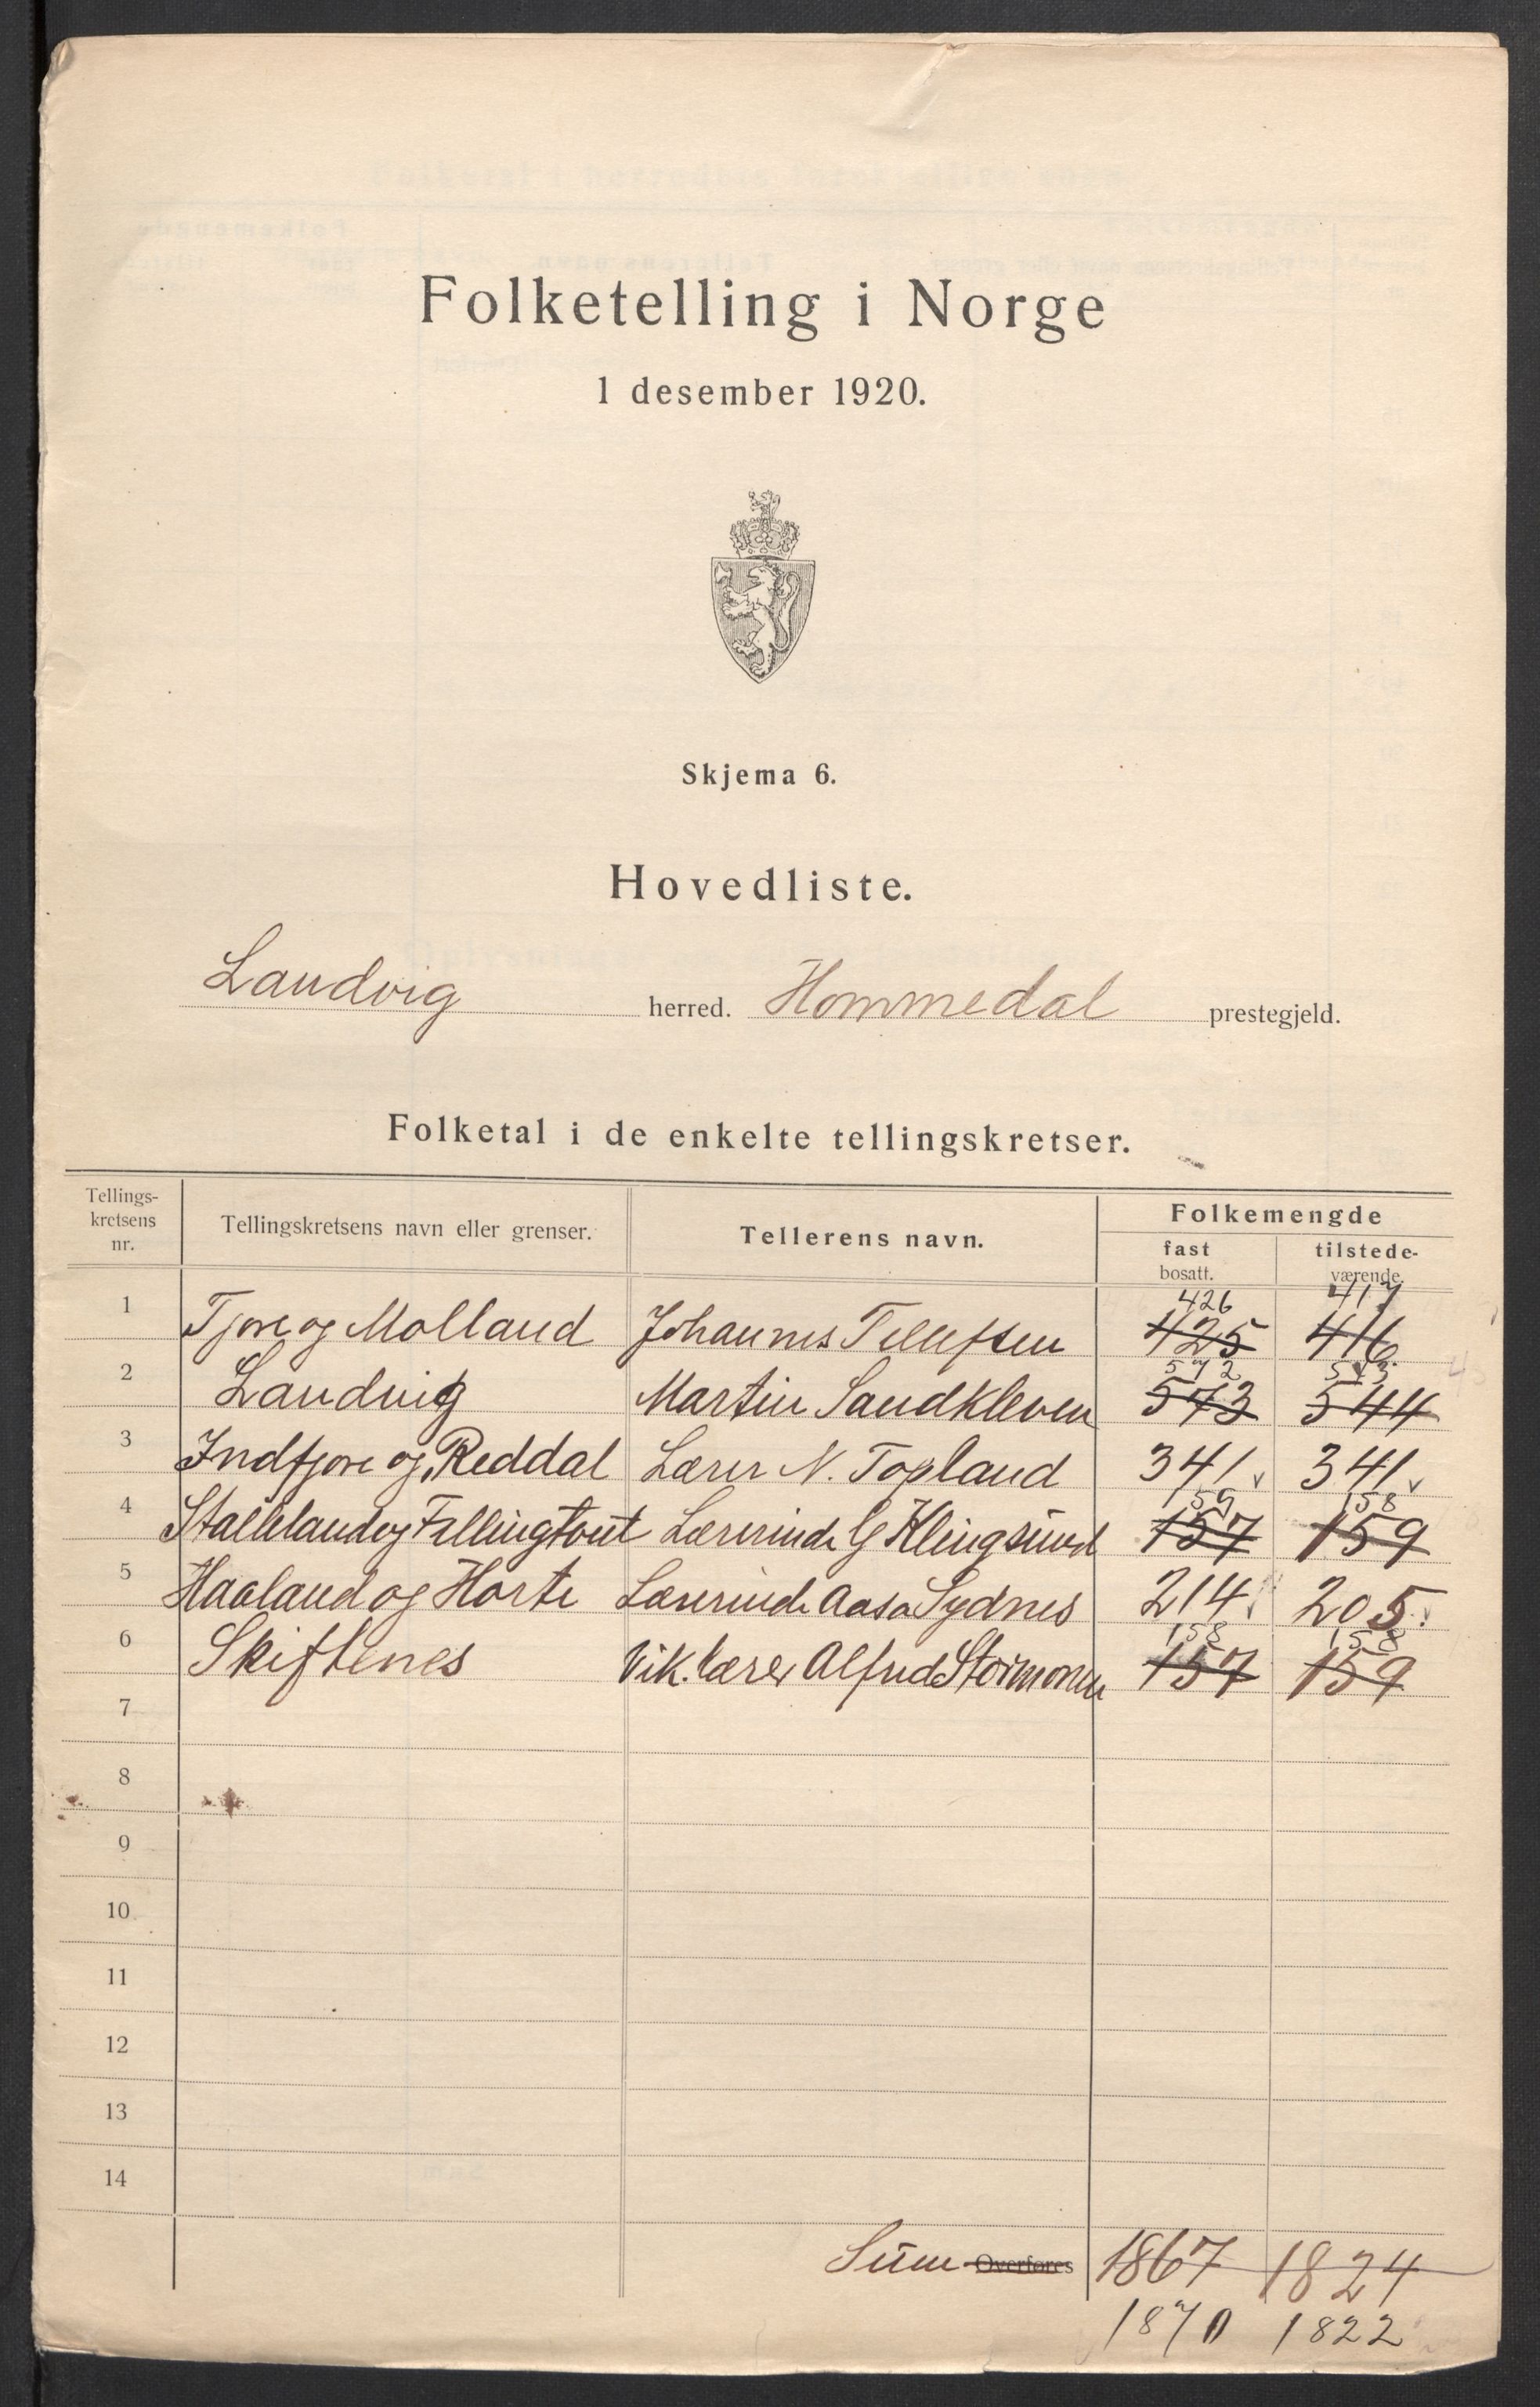 Folketelling i Norge
1 desember 1920.
Skjema 6.
Hovedliste.
Landvig herred. Hommedal prestegjeld.
Folketal i de enkelte tellingskretser.
Tellings-
kretsens
nr.
Tellingskretsens navn eller grenser.
Tellerens navn.
Folkemengde
fast
bosatt.
tilstede-
værende.
426 417
1 Tjore og Molland Johannes Tellefsen 425 416
572 543
2 Landvig Martin Sandkleven 573 544
3 Indtjore og Reddal Lærer N. Topland 341 341
159 158
4 Stallelandog Lærerinde G Klingsund 157 159
5 Haaland og Horte Lærerinde Aasa Sydnes 214 205
158 158
6 Skiftenes Vik. lærer Alfred 157 159
7
8
9
10
11
12
13
14
Sum Overføres 1867 1824
1870 1822